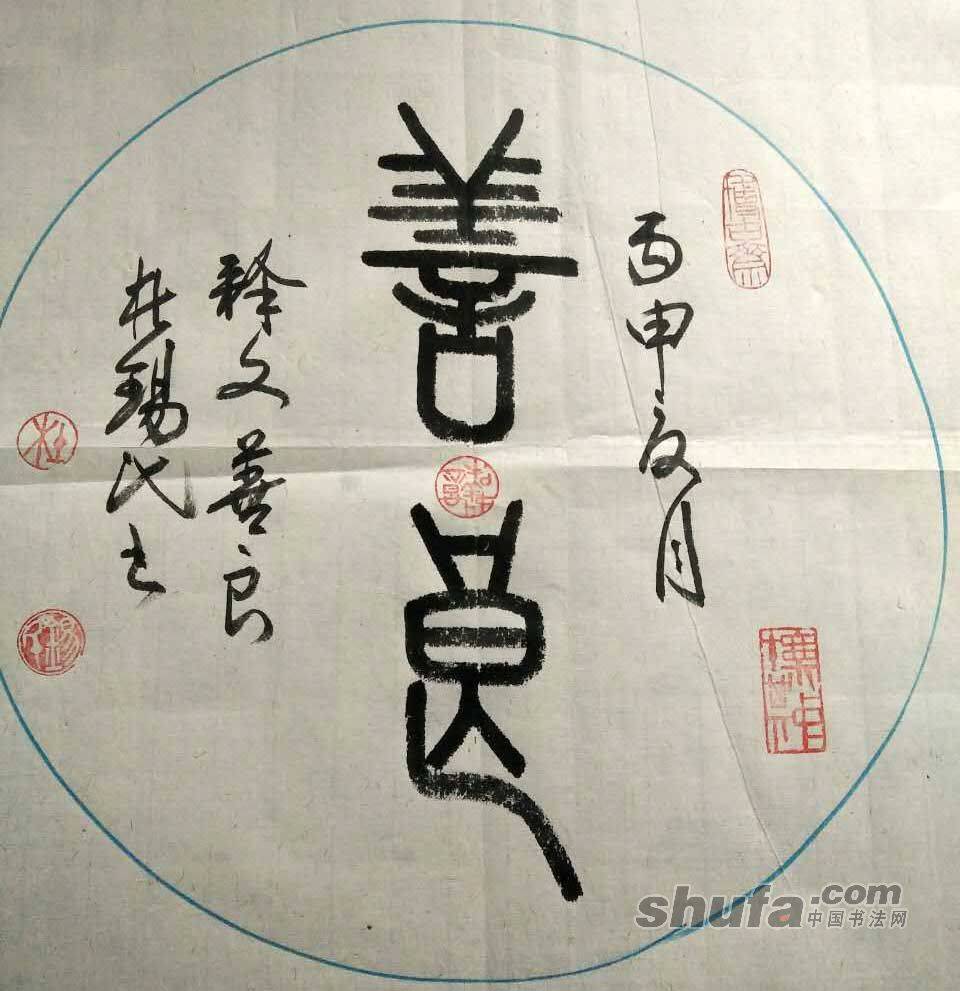 丙申夏月
善良
释文善良
杜锡民书
杜
shufa.com
中国书法网